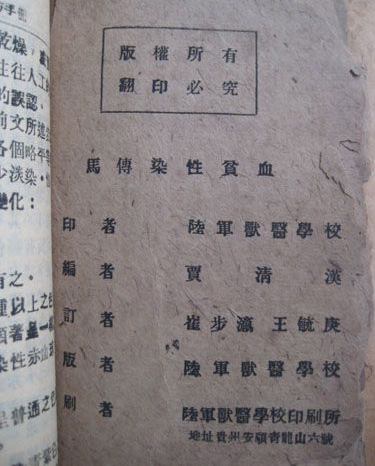 手冊
乾燥，
往往人工
的誤認。
前文所述
各個略平
少淡染，
變化：
有之。
種以上之色
顯著呈一
染性赤血
呈普通之色
版權所有
翻印必究
馬傳染性貧血
印者 陸軍獸醫學校
編者 賈清漢
訂者 崔步瀛 王毓庚
版者 陸軍獸醫學校
刷者 陸軍獸醫學校印刷所
地址貴州安順青龍山六號